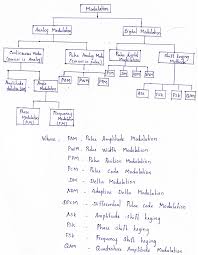 Modulation
Analog Modulation
Digital Modulation
Continuous Mode
(carrier is Analog)
Pulse Analog Mode
Pulse digital
Modulation
Shift keying
Amplitude
Angle
Modulation
PAM
PWM
PPM
PCM
DM
ADM
DPCM
ASK
PSK
FSK
QAM
Phase
Modulation
(PM)
Frequency
Modulation
(FM)
Where : PAM - Pulse Amplitude Modulation
PWM - Pulse Width Modulation
PPM - Pulse Position Modulation
PCM - Pulse Code Modulation
DM - Delta Modulation
ADM - Adaptive Delta Modulation
DPCM - Differential Pulse code Modulation
ASK - Amplitude shift keying
PSK - Phase shift keying
FSK - Frequency shift keying
QAM - Quadrature Amplitude Modulation